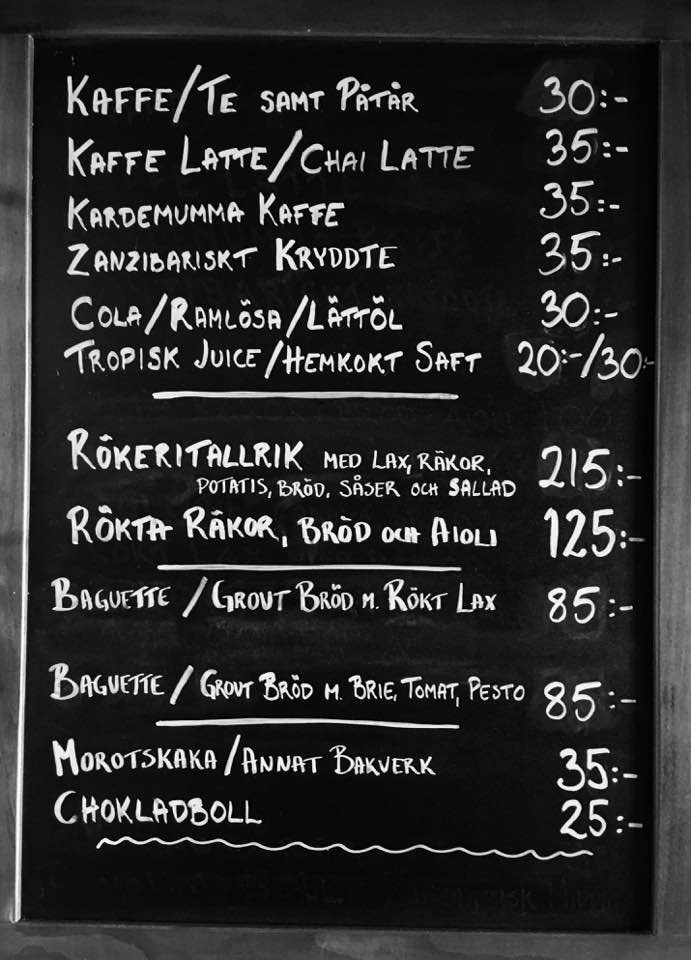 KAFFE/TE SAMT PÅTÅR 30:-
KAFFE LATTE/CHAI LATTE 35:-
KARDEMUMMA KAFFE 35:-
ZANZIBARISKT KRYDDTE 35:-
COLA/RAMLÖSA/LÄTTÖL 30:-
TROPISK JUICE/HEMKOKT SAFT 20:-/30:-
RÖKERITALLRIK MED LAX, RÄKOR, 215:-
POTATIS, BRÖD, SÅSER OCH SALLAD
RÖKTA RÄKOR, BRÖD OCH AIOLI 125:-
BAGUETTE / GROVT BRÖD M. RÖKT LAX 85:-
BAGUETTE / GROVT BRÖD M. BRIE, TOMAT, PESTO 85:-
MOROTSKAKA/ANNAT BAKVERK 35:-
CHOKLADBOLL 25:-